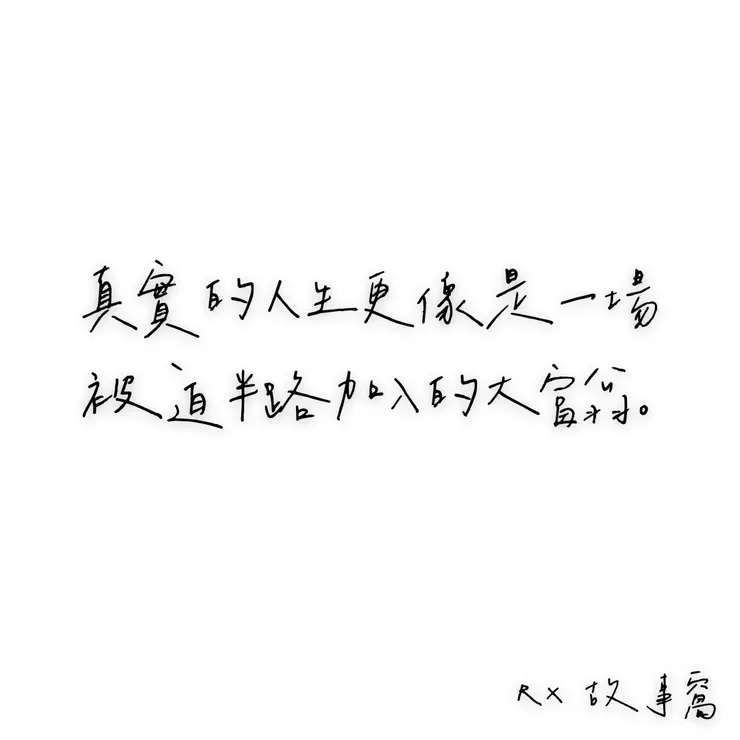 真實的人生更像是一場
被迫半路加入的大富翁。
RX 故事窩